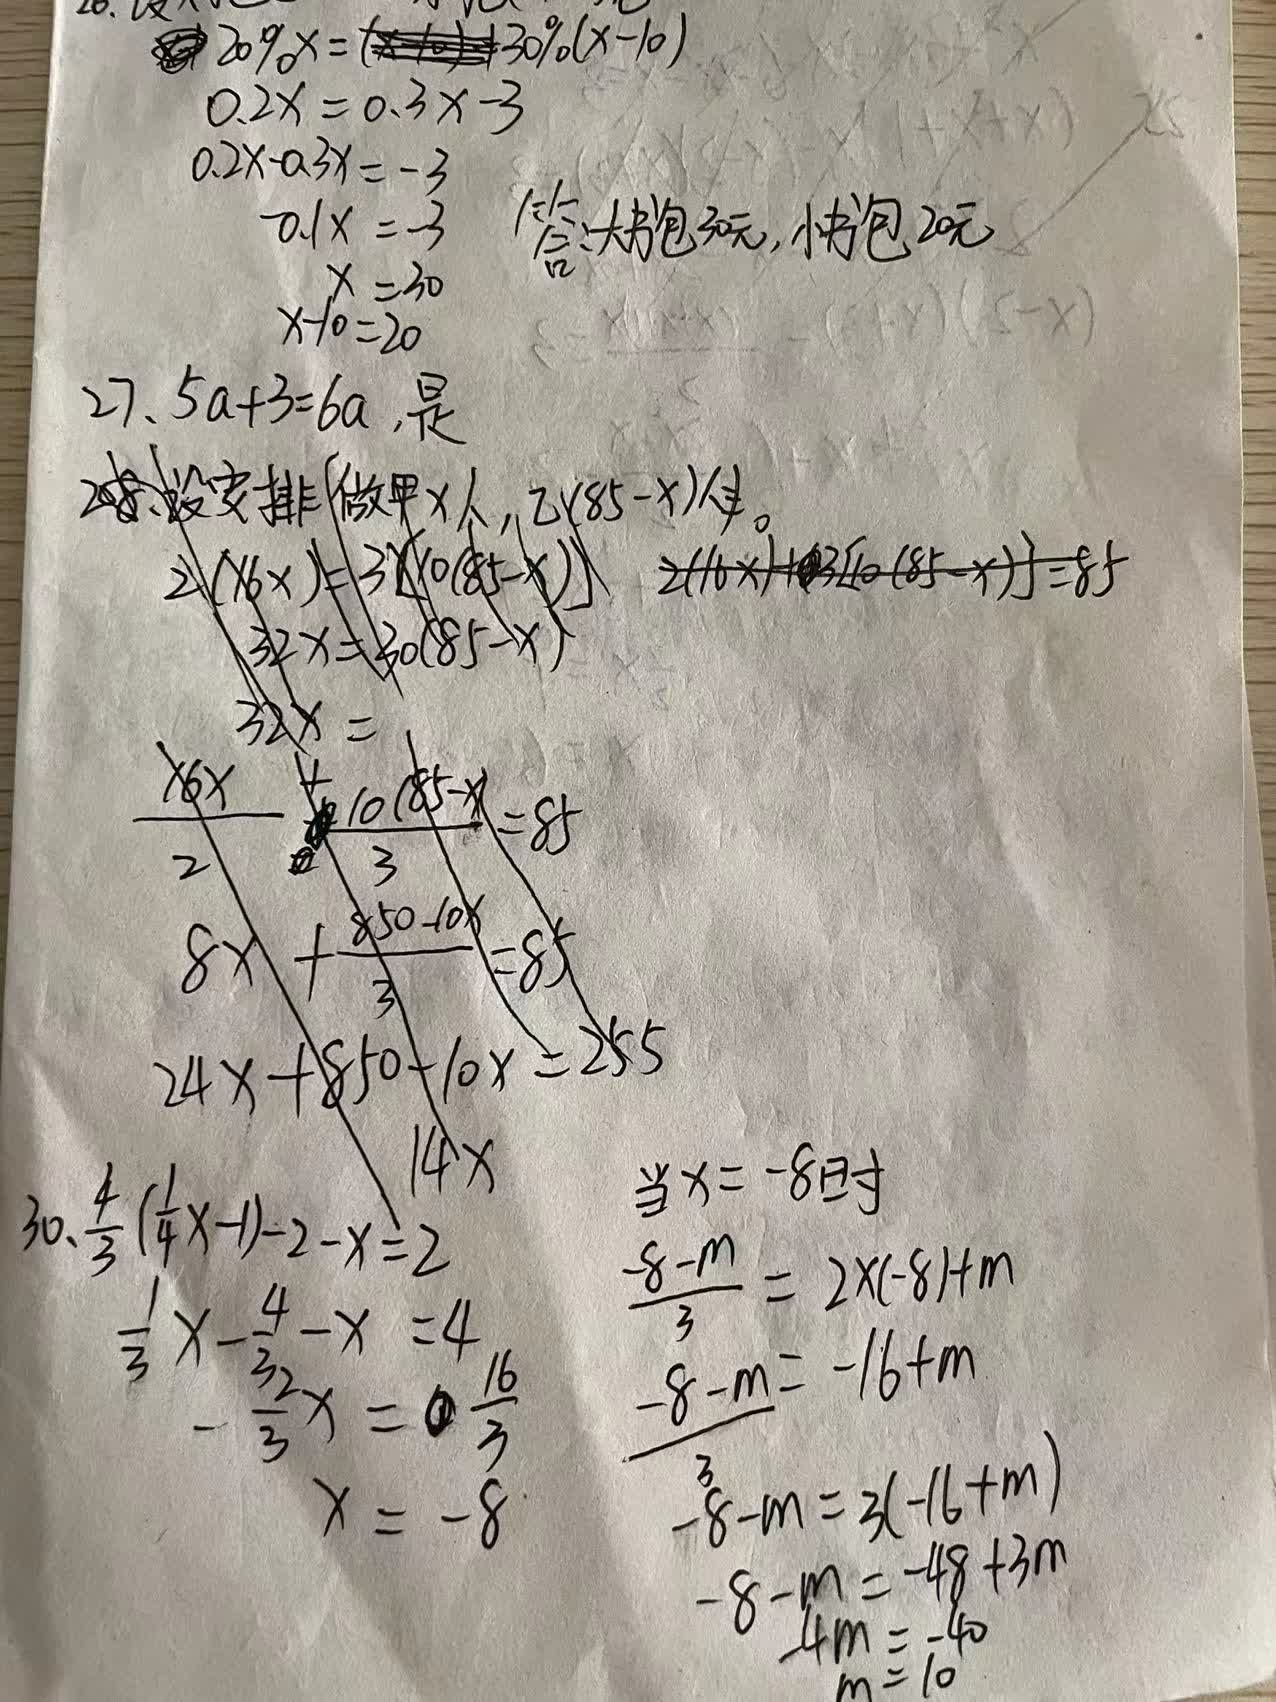 20%x=30%(x-10)
0.2x=0.3x-3
0.2x-0.3x=-3
-0.1x=-3
x=30
x-10=20
答:大书包30元,小书包20元
27、5a+3=6a,是
28、设安排做甲x人,乙(85-x)人。
2(16x)=3[10(85-x)] 2(16x)+3[10(85-x)]=85
32x=30(85-x)
32x=
16x/2+10(85-x)/3=85
8x+850-10x/3=85
24x+850-10x=255
14x
30、4/3(1/4x-1)-2-x=2
1/3x-4/3-x=4
-2/3x=16/3
x=-8
当x=-8时
-8-m/3=2x(-8)+m
-8-m/3=-16+m
-8-m=3(-16+m)
-8-m=-48+3m
-4m=-40
m=10